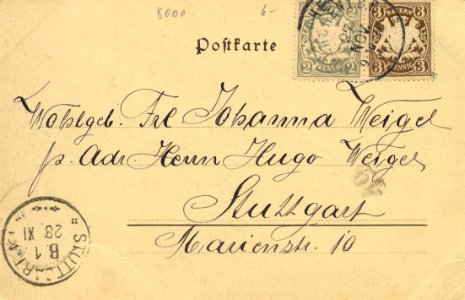 8000
6.-
Postkarte
2 2
PFENNIG
3 3
PFENNIG
NOV
Wohlgeb. Frl Johanna Weigel
p. Adr. Herrn Hugo Weigel
Stuttgart
Marienstr. 10
STUTTGART
B 1
28 XI